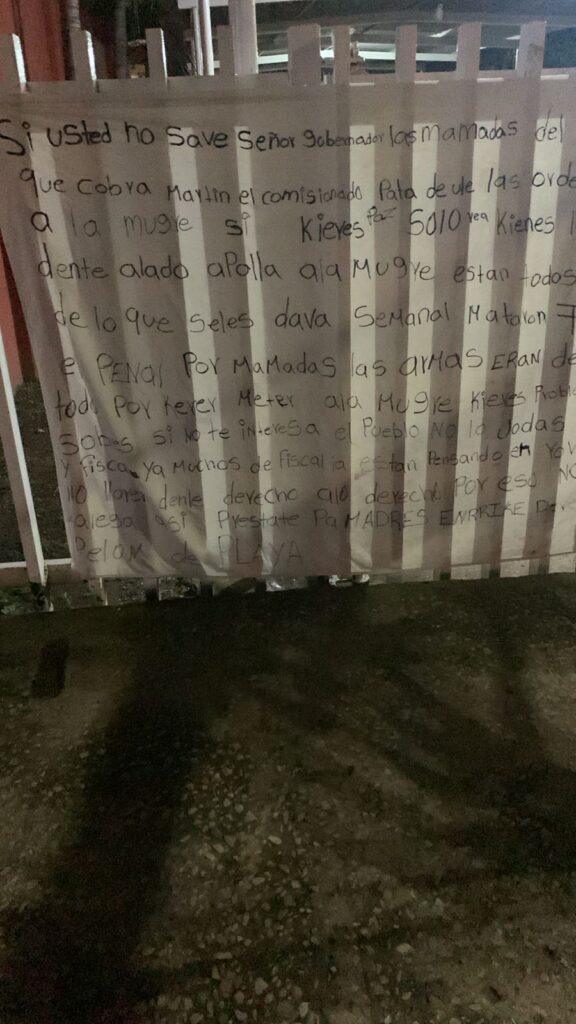 Si usted no save señor gobernador las mamadas del
que cobra Martin el comisionado Pata de ule las orde
a la mugre si Kieves Paz Solo vea Kienes
dente alado apolla ala Mugre estan todos
de lo que seles dava semanal Mataron 7
e PENAl Por MaMadas las arMas ERAN de
tod Por Kerer Meter ala Mugre Kieves Proble
Sobes si No te interesa el Pueblo No lo Jodas
y fisca ya Muchos de Fiscalia estan Pensando en
NO denle derecho alo derecho Por eso NO
alega asi Prestate Pa MADRES ENRRIKE
Pelon de PLAYA